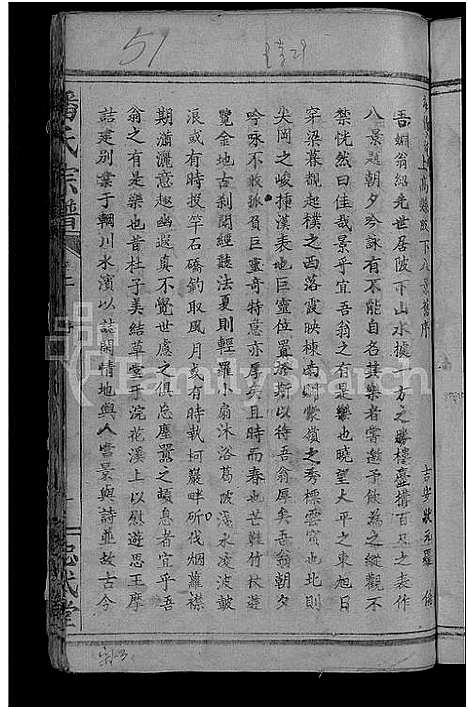 51
上高縣陂下八景舊序
吉安狀元羅 倫
吾姻翁紹先世居陂下山水據十方之勝樓臺構百尺之表作
八景題朝夕吟詠有不能自名其樂者嘗邀予飲為之縱觀不
禁恍然曰佳哉景乎宜吾翁之有是樂也曉望大平之東旭日
穿梁暮觀起樸之西落霞映棟南嘲蒙嶺之秀標雲霄也北則
尖岡之峻插漢表也巨靈位置於斯以待吾翁厚矣吾翁朝夕
吟咏不敢孤負巨靈奇特意亦厚矣且時而春也芒鞋竹杖遊
覽金地古剎聞經談法夏則輕羅小扇沐浴葛陂淺水凌波鼓
浪或有時投竿石礄釣取風月或有時執柯巖畔斫伐烟蘿襟
期瀟灑意趣幽遐真不覺世慮之俱忘塵囂之頓息者宜乎吾
翁之有是樂也昔杜子美結草堂于浣花溪上以慰遊思王摩
詰建別業于輞川水濱以誌閑情地與人靈景與詩並故古今
潘氏宗譜
忠武堂
FamilySearch